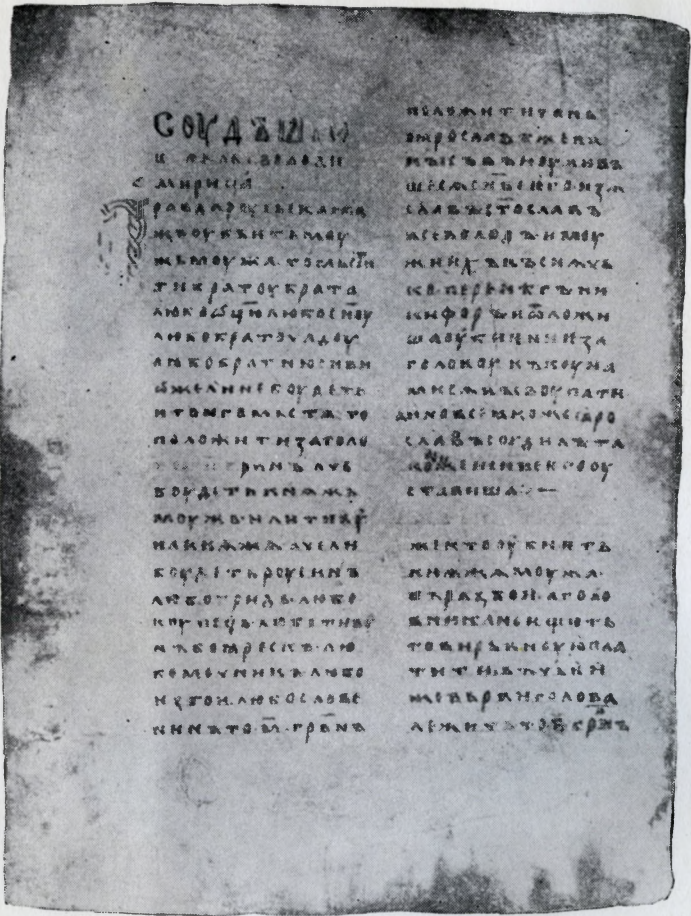 СОУДЪ ꙖРО
СЛАВЛЬ ВОЛОДИ
МИРИЦА
РАВДА РОУСЬСКАꙖ АЖЕ
ОУБЬЕТЬ МОУ
ЖЬ МОУЖА ТО МЬСТИ
ТИ БРАТОУ БРАТА
ЛЮБО ОЦЮ ЛЮБО СНОУ
ЛЮБО БРАТОЧАДОУ
ЛЮБО БРАТНЮ СНВИ
ОЖЕ ЛИ НЕ БОУДЕТЬ
КТО ѤГО МЬСТѦ ТО
ПОЛОЖИТИ ЗА ГОЛО
ГРИВНЪ АЧЕ
БОУДЕТЬ КНѦЖЬ
МОУЖЬ ИЛИ ТИВОУ
НА КНѦЖА АЧЕ ЛИ
БОУДЕТЬ РОУСИНЪ
ЛЮБО ГРИДЬ ЛЮБО
КОУПЕЦЬ ЛЮБО ТИВОУ
НЪ БОꙖРЕСКЪ ЛЮ
БО МЕЧНИКЪ ЛЮБО
ИЗГОИ ЛЮБО СЛОВЕ
НИНЪ ТО М ГРВНЪ
ПОЛОЖИТИ ЗА НЬ
ПО ꙖРОСЛАВѢ ЖЕ ПА
КЫ СЪВЪКОУПИВЪ
ШЕСѦ СНВЕ ѤГО ИЗѦ
СЛАВЪ СТОСЛАВЪ
ВСЕВОЛОДЪ И МОУ
ЖИ ИХЪ КЪСНѦЧЬ
КО ПЕРЕНѢГЪ НИ
КИФОРЪ И ѾЛОЖИ
ША ОУБИЕНИЕ ЗА
ГОЛОВОУ НЪ КОУНА
МИ СѦ ВЫКОУПАТИ
А ИНО ВСЕ ꙖКОЖЕ ꙖРО
СЛАВЪ СОУДИЛЪ ТА
КОЖЕ И СНВЕ ѤГО ОУ
СТАВИША
ЖЕ КТО ОУБИѤТЬ
КНѦЖА МОУЖА
ВЪ РАЗБОИ А ГОЛО
ВНИКА НЕ ИЩЮТЬ
ТО ВИРЬВНОУЮ ПЛА
ТИТИ ВЪ ЧЬѤИ
ЖЕ ВЬРВИ ГОЛОВА
ЛЕЖИТЬ ТО П ГРВНЪ